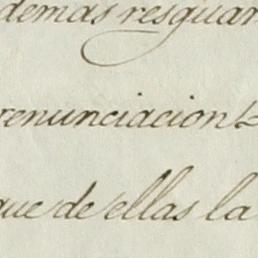 demas resguar
renunciacion
que de ellas la